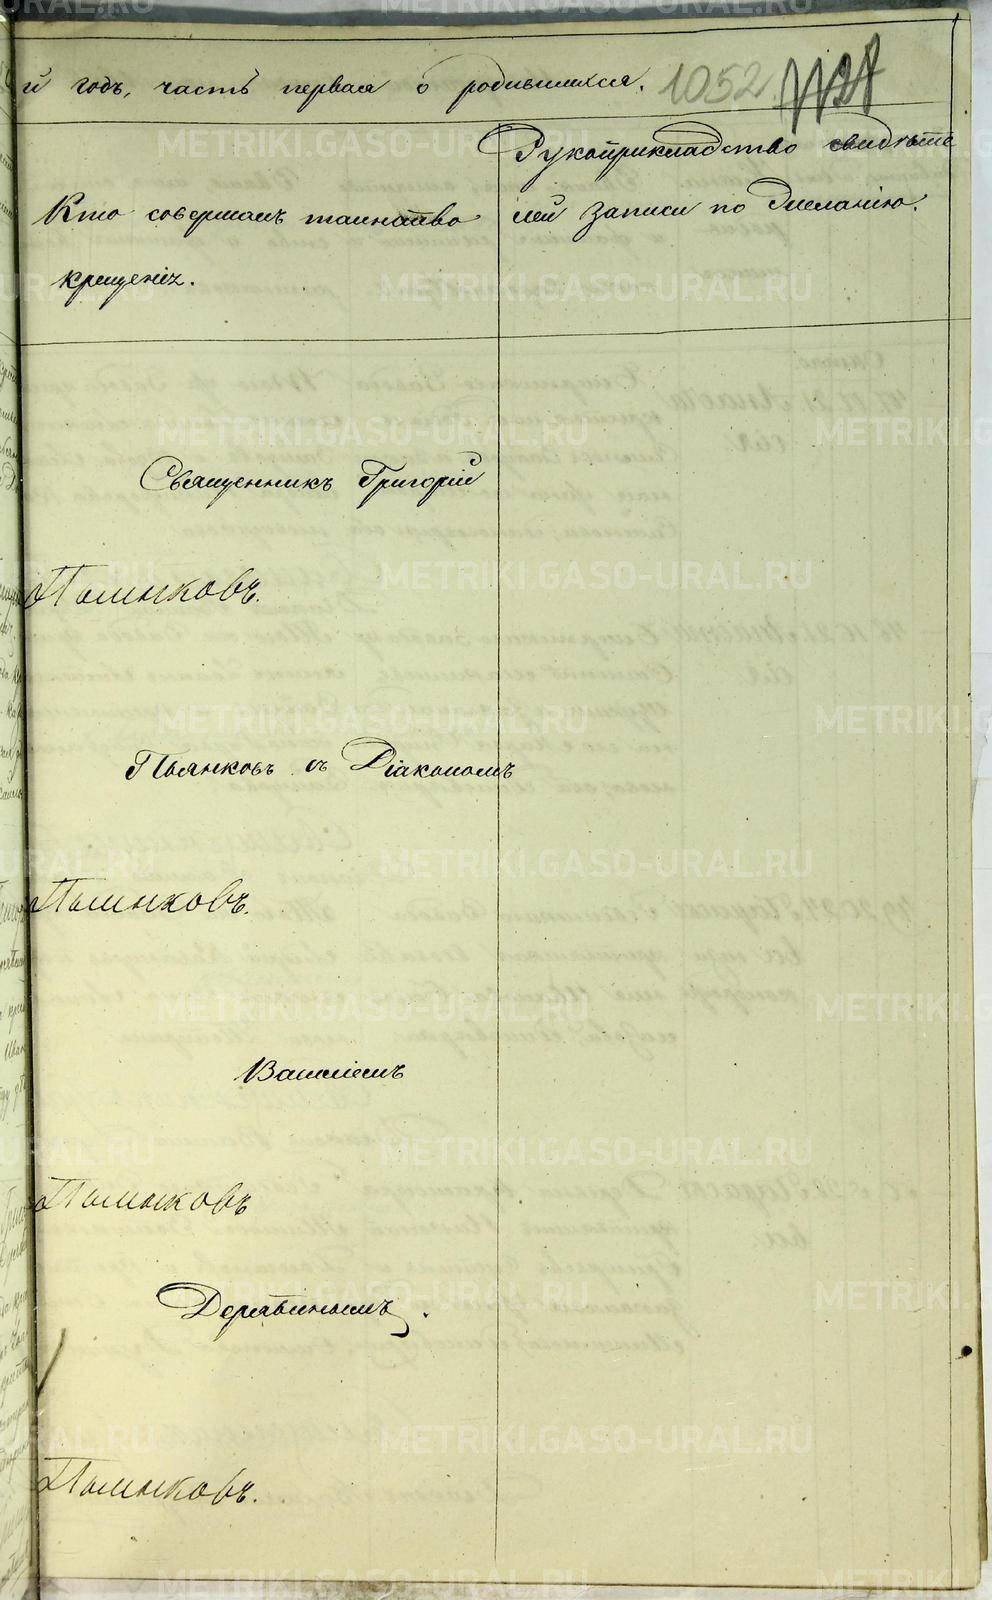 й годъ, часть первая о родившихся. 1052
Кто совершалъ таинство
крещенія.
Рукоприкладство свидѣте
лей записи по желанію.
Священникъ Григорій
Пьянковъ.
Пьянковъ съ Діакономъ
Пьянковъ.
Василіемъ
Пьянковъ
Дерябинымъ.
Пьянковъ.
METRIKI.GASO-URAL.RU